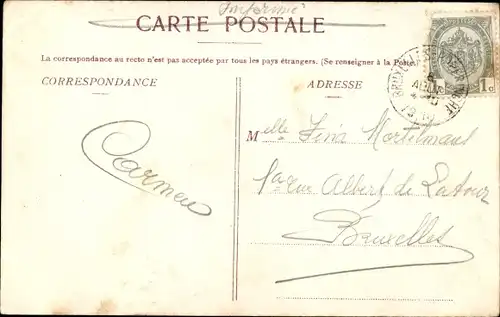 Imprimé
CARTE POSTALE
La correspondance au recto n'est pas acceptée par tous les pays étrangers. (Se renseigner à la Poste.)
CORRESPONDANCE
ADRESSE
Carmen
Melle Fini Mortelmans
1a rue Albert de Latour
Bruxelles
1c